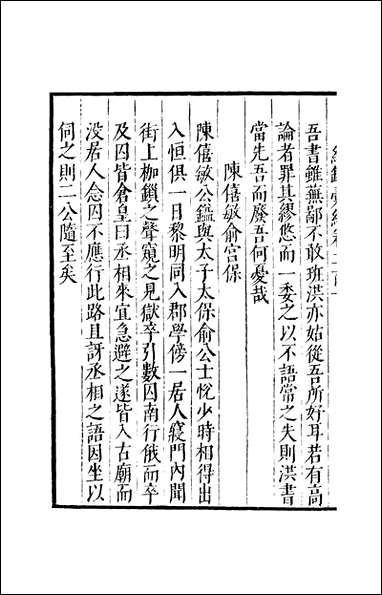 吾書雖蕪鄙不敢班洪亦姑從吾所好耳若有高
論者罪其繆悠而一委之以不語常之失則洪書
當先吾而廢吾何憂哉
陳僖敏俞宫保
陳僖敏公鑑與太子太保俞公士悅少時相得出
入恒俱一日黎明同入郡學傍一居人寢門內聞
街上枷鎖之聲窺之見獄卒引數囚南行俄而卒
及囚皆倉皇曰丞相來宜急避之遂皆入古廟而
没居人念囚不應行此路且訝丞相之語因坐以
伺之則二公隨至矣